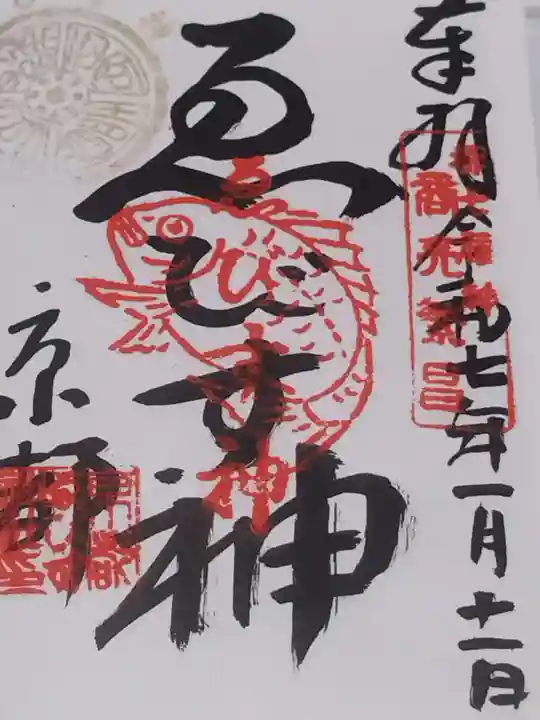 奉拝 令和七年一月十一日
商売繁昌
ゑびす神
ゑびす神
京都